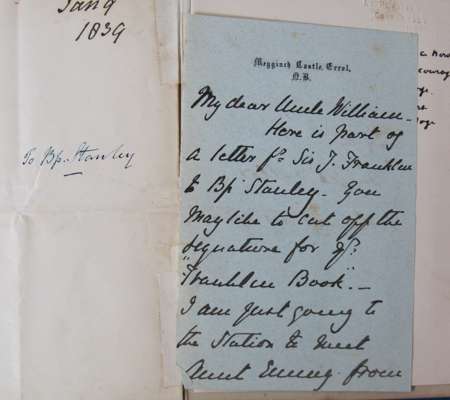 Jan 9
1839
To Bp. Stanley
Megginch Castle, Errol,
N.B.
My dear Uncle William -
Here is part of
a letter fr. Sir J. Franklin
to Bp. Stanley - You
may like to cut off the
signature for yr.
"Franklin Book". -
I am just going to
the Station to meet
Aunt Emmy from